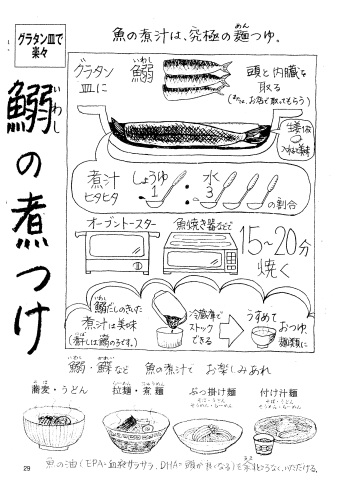 魚の煮汁は、究極の麺つゆ。
グラタン皿で
楽々
鰯の煮つけ
いわし
グラタン
皿に
鰯
いわし
頭と内臓を
取る
(または、お店で取ってもらう)
生姜
入れると美味
煮汁
ヒタヒタ
しょうゆ
1
:
水
3
の割合
オーブントースター
魚焼き器などで
15〜20分
焼く
鰯だしのきいた
煮汁は美味
冷蔵庫で
ストック
できる
うすめて
おつゆ、
麺類に
鰯・鰹など 魚の煮汁で お楽しみあれ
蕎麦・うどん
拉麺・煮麺
ぶっ掛け麺
そば・うどん
そうめん・らーめん
付け汁麺
そば・うどん
そうめん・らーめん
29
魚の油(EPA=血液サラサラ、DHA=頭が良くなる)を余すところなく、いただける。